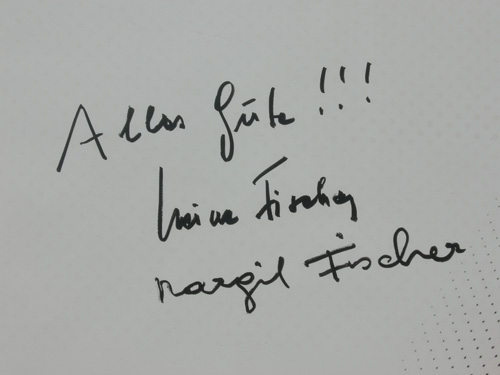 Alles Gute !!!
Fischer
Margit Fischer